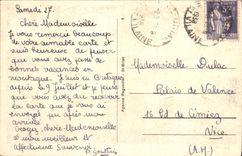 Samedi 27.
Chère Mademoiselle
Je vous remercie beaucoup
de votre aimable carte et
suis heureuse de penser
que vous avez passé de
bonnes vacances en
montagne. Je suis en Bretagne
depuis le 9 juillet et je
pense que la carte que je vous ai
envoyée par après mon
arrivée
Croyez, chère Mademoiselle
à mon meilleur et
affectueux Souvenir.
Mademoiselle Dulac
Palais de Valence
15 Bd de Cimiez
Nice
(A. M)